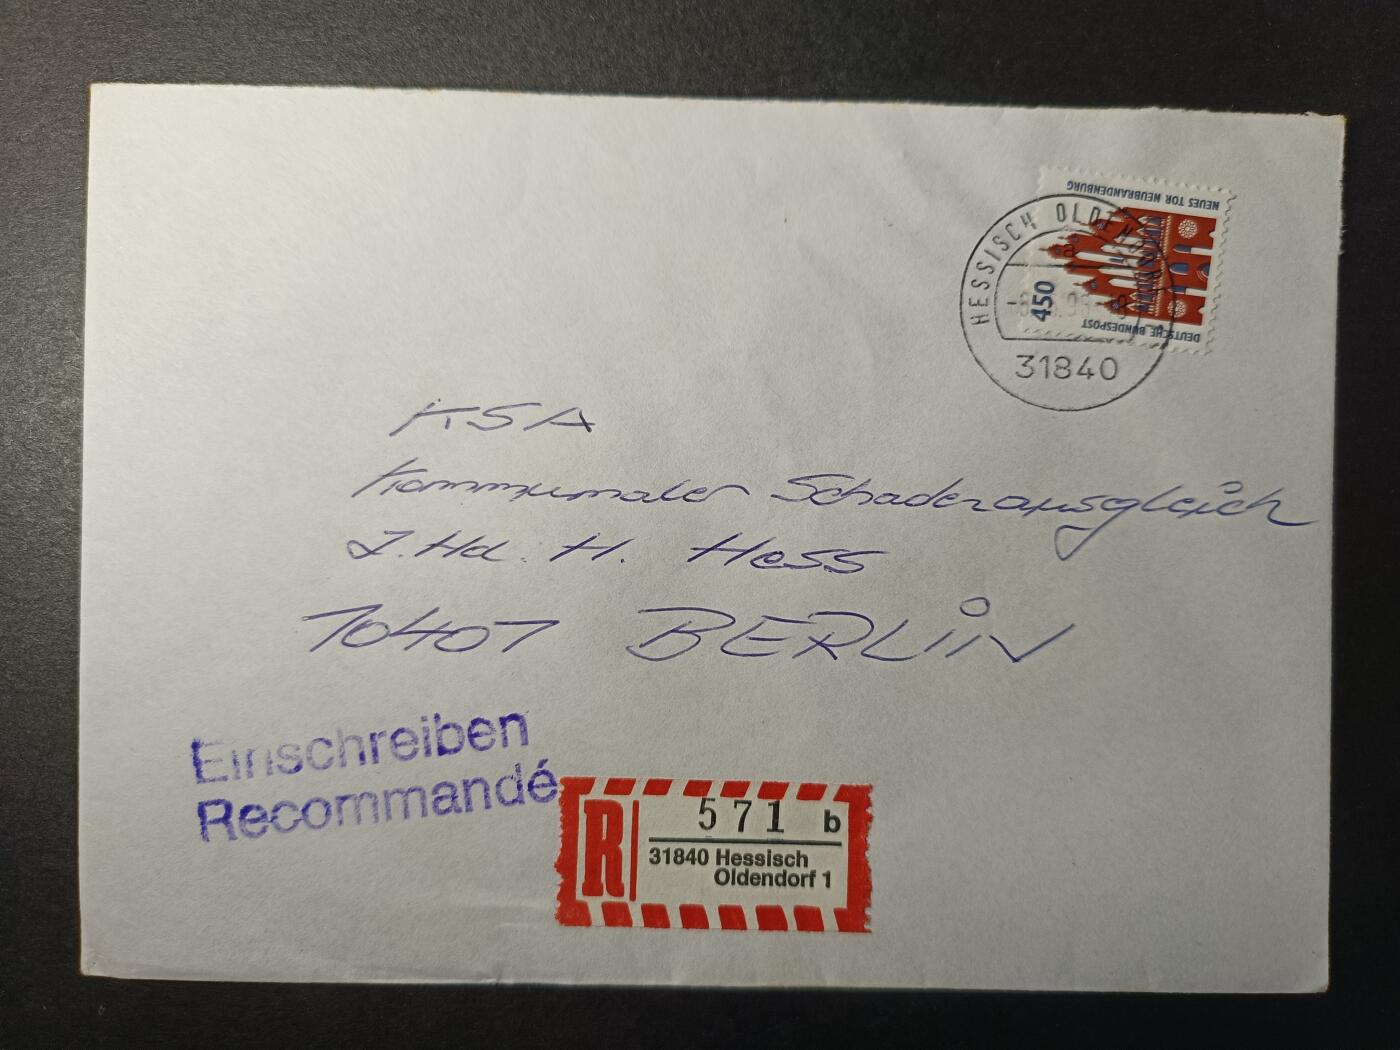 NEUES TOR NEUBRANDENBURG
HESSISCH
a
450
DEUTSCHE BUNDESPOST
31840
KSA
Kommunaler Schadenausgleich
Z.Hd. H. Hess
10407 BERLIN
Einschreiben
Recommandé
R
571 b
31840 Hessisch
Oldendorf 1